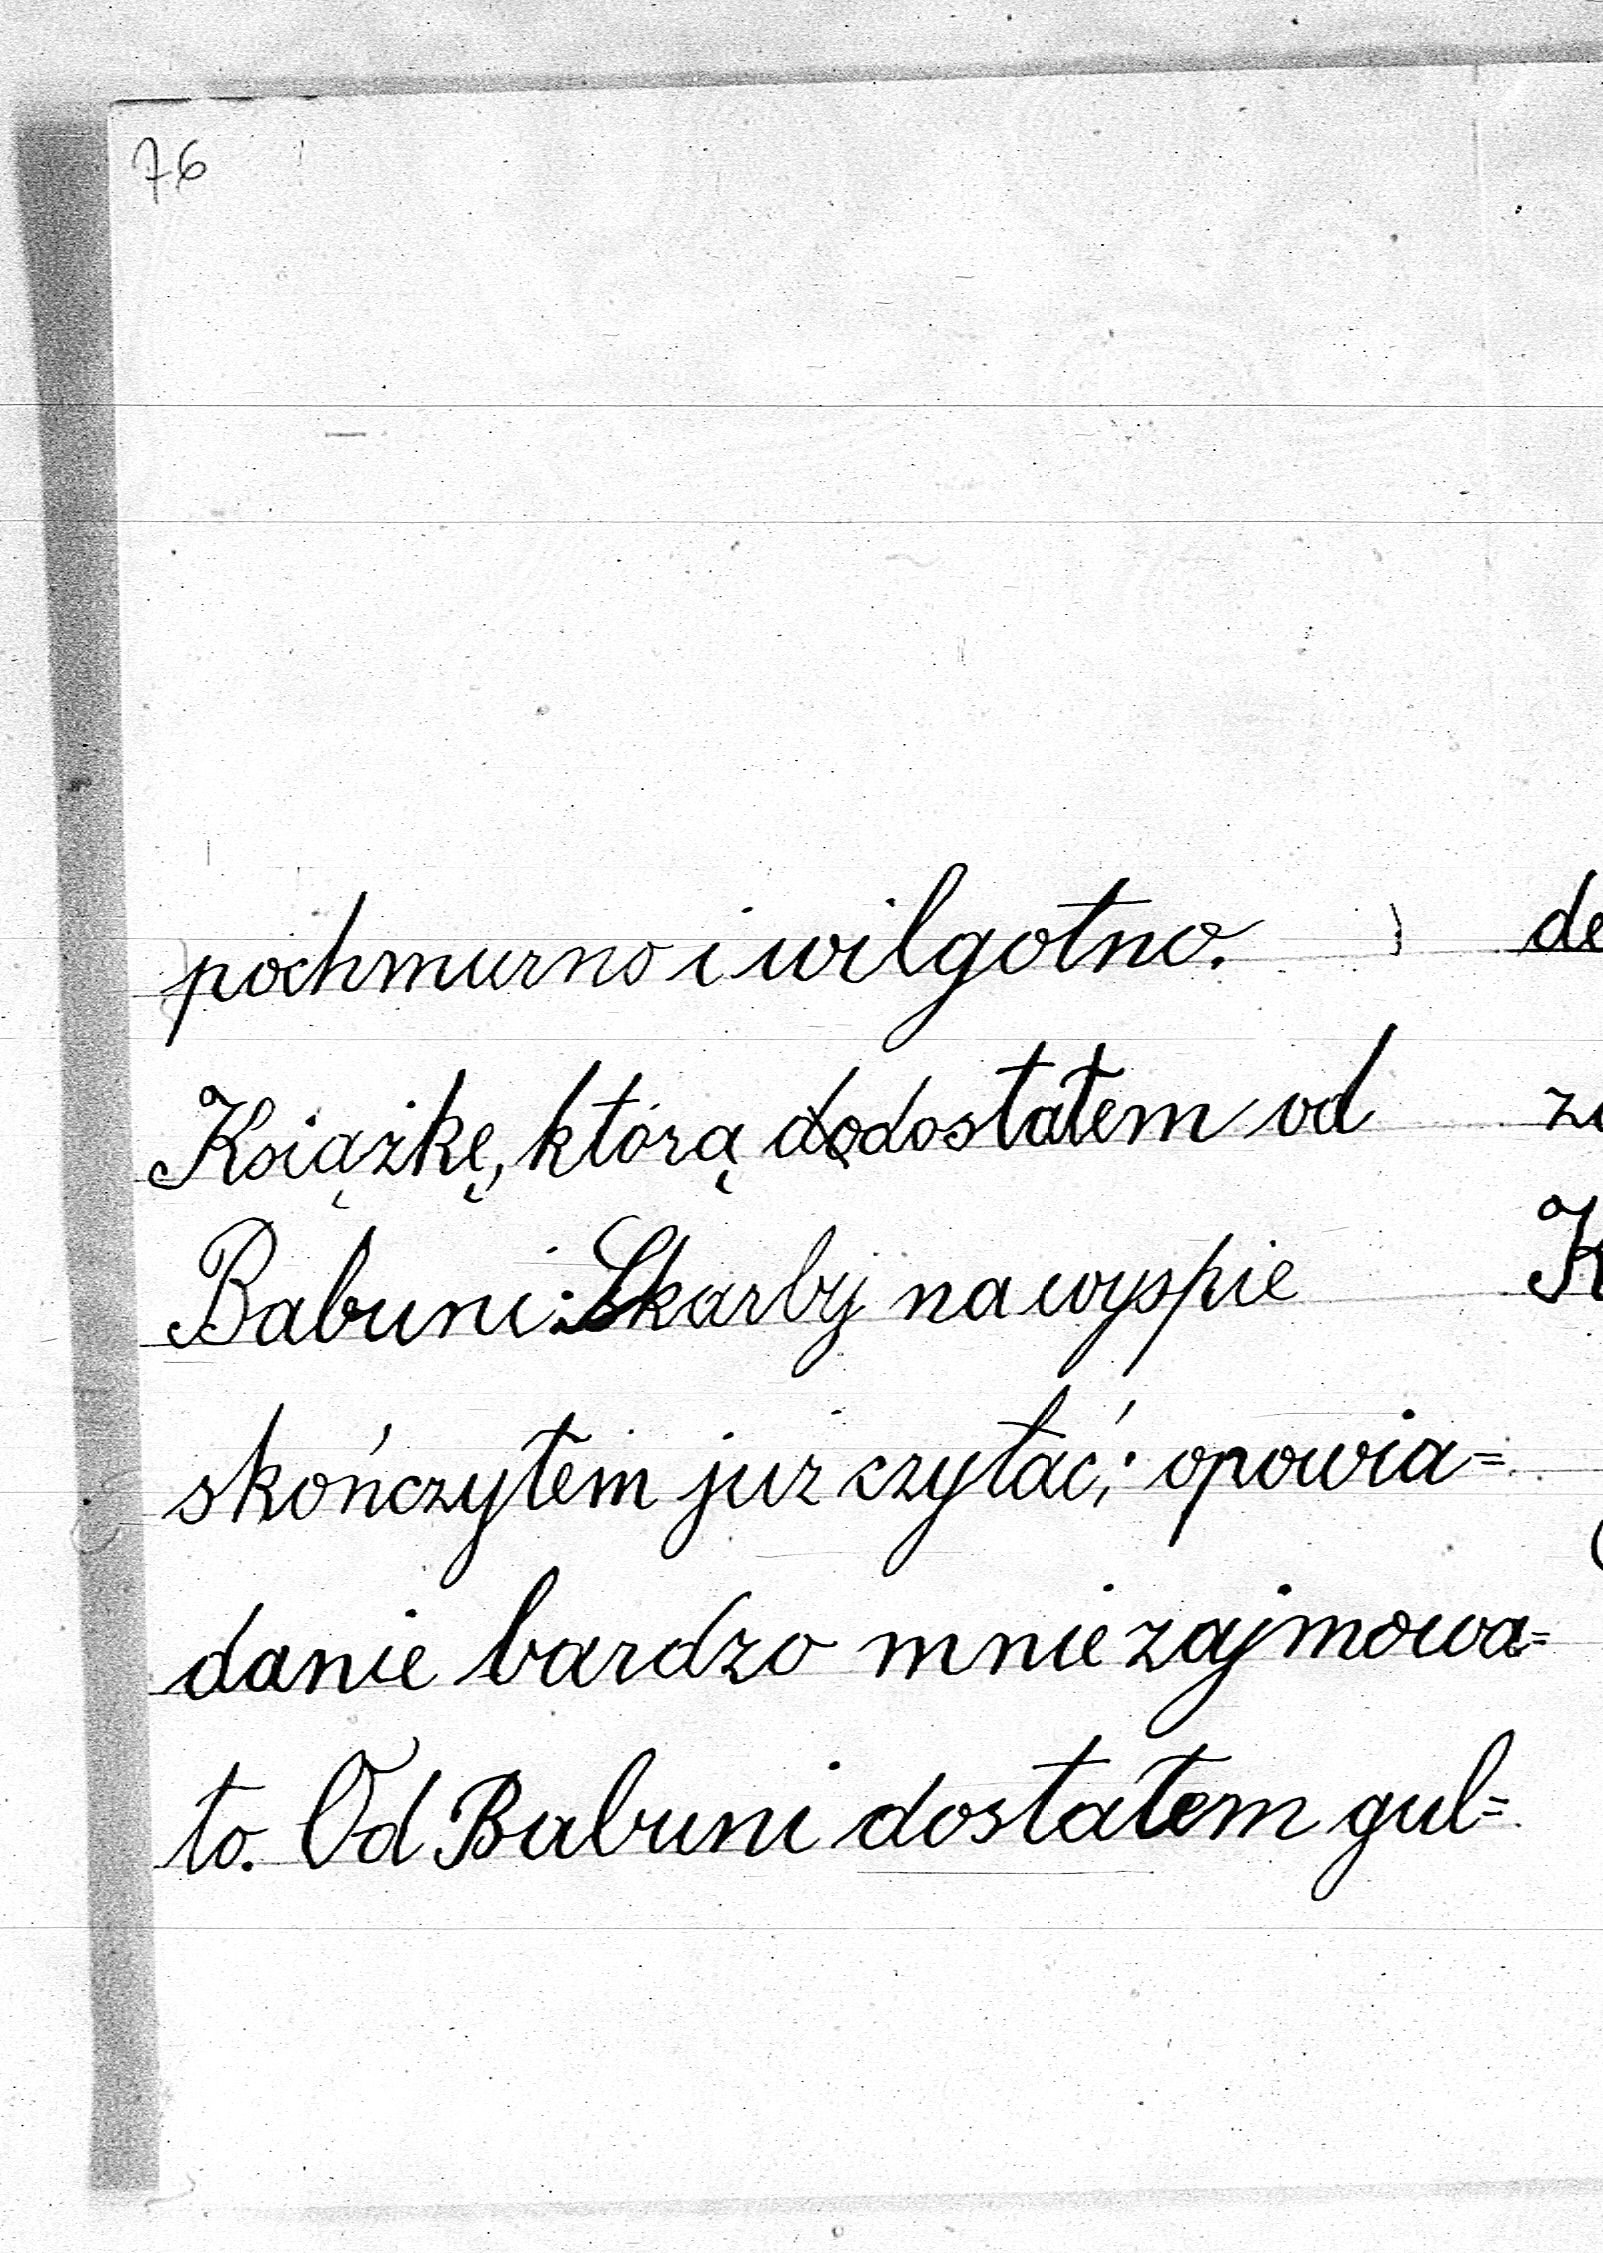 76
pochmurno i wilgotno.
Książkę, którą dodostałem od
Babuni: Skarby na wyspie
skończyłem już czytać; opowia=
danie bardzo mnie zajmowa=
ło. Od Babuni dostałem gul=
de
K